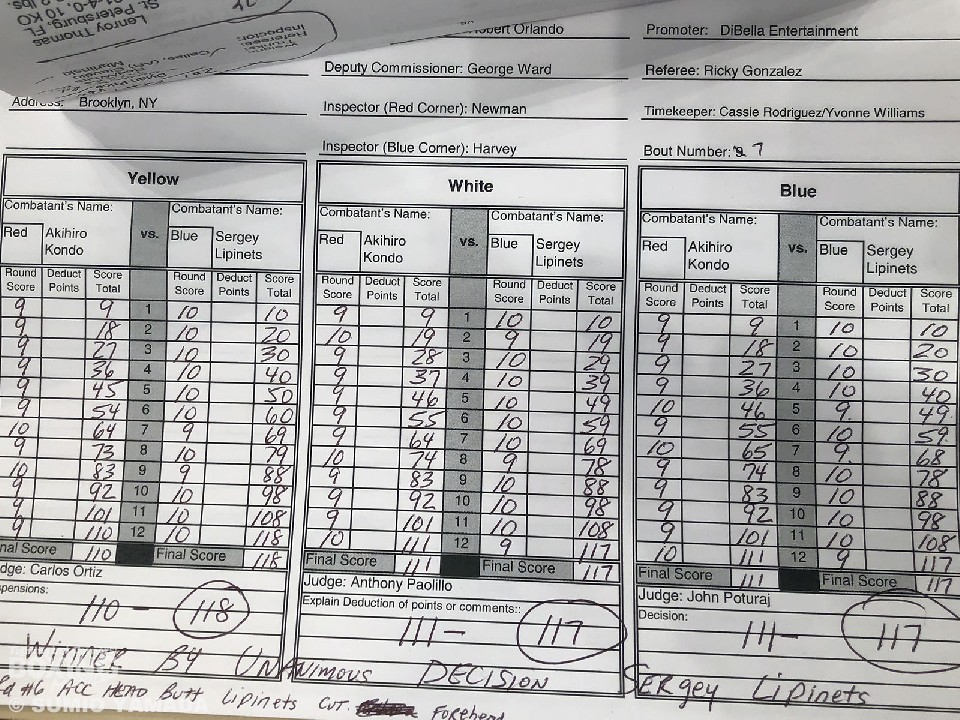 Lenroy Thomas
St. Petersburg, FL
10 KO
Referee:
Inspector:
Orlando
Promoter: DiBella Entertainment
Deputy Commissioner: George Ward
Referee: Ricky Gonzalez
Address: Brooklyn, NY
Inspector (Red Corner): Newman
Timekeeper: Cassie Rodriguez/Yvonne Williams
Inspector (Blue Corner): Harvey
Bout Number: 7
Yellow
Combatant's Name: vs. Combatant's Name:
Red Akihiro Kondo Blue Sergey Lipinets
Round Score Deduct Points Score Total Round Score Deduct Points Score Total
9 9 1 10 10
9 18 2 10 20
9 27 3 10 30
9 36 4 10 40
9 45 5 10 50
9 54 6 10 60
10 64 7 9 69
9 73 8 10 79
10 83 9 9 88
9 92 10 10 98
9 101 11 10 108
9 110 12 10 118
Final Score 110 Final Score 118
Judge: Carlos Ortiz
110 - 118
White
Combatant's Name: vs. Combatant's Name:
Red Akihiro Kondo Blue Sergey Lipinets
Round Score Deduct Points Score Total Round Score Deduct Points Score Total
9 9 1 10 10
10 19 2 9 19
9 28 3 10 29
9 37 4 10 39
9 46 5 10 49
9 55 6 10 59
9 64 7 10 69
10 74 8 9 78
9 83 9 10 88
9 92 10 10 98
9 101 11 10 108
10 111 12 9 117
Final Score 111 Final Score 117
Judge: Anthony Paolillo
Explain Deduction of points or comments::
111 - 117
Blue
Combatant's Name: vs. Combatant's Name:
Red Akihiro Kondo Blue Sergey Lipinets
Round Score Deduct Points Score Total Round Score Deduct Points Score Total
9 9 1 10 10
9 18 2 10 20
9 27 3 10 30
9 36 4 10 40
10 46 5 9 49
9 55 6 10 59
10 65 7 9 68
9 74 8 10 78
9 83 9 10 88
9 92 10 10 98
9 101 11 10 108
10 111 12 9 117
Final Score 111 Final Score 117
Judge: John Poturaj
Decision:
111 - 117
WINNER BY UNANIMOUS DECISION SERgey LipiNets
Rd #6 ACC HEAD BUTT Lipinets CUT. Forehead
© SUMIO YAMADA